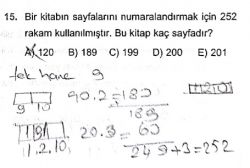 15. Bir kitabın sayfalarını numaralandırmak için 252
rakam kullanılmıştır. Bu kitap kaç sayfadır?
A) 120 B) 189 C) 199 D) 200 E) 201
tek hane 9
9 10
90.2=180
189
1.2.10
20.3=60
249+3=252